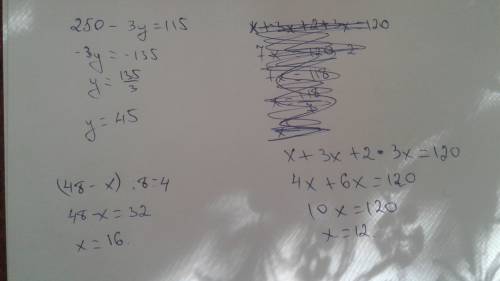 250 - 3y = 115
-3y = -135
y = 135/3
y = 45
(48 - x) : 8 = 4
48 - x = 32
x = 16.
x + 3x + 2 + 3x = 120
x + 3x + 2 • 3x = 120
4x + 6x = 120
10x = 120
x = 12.